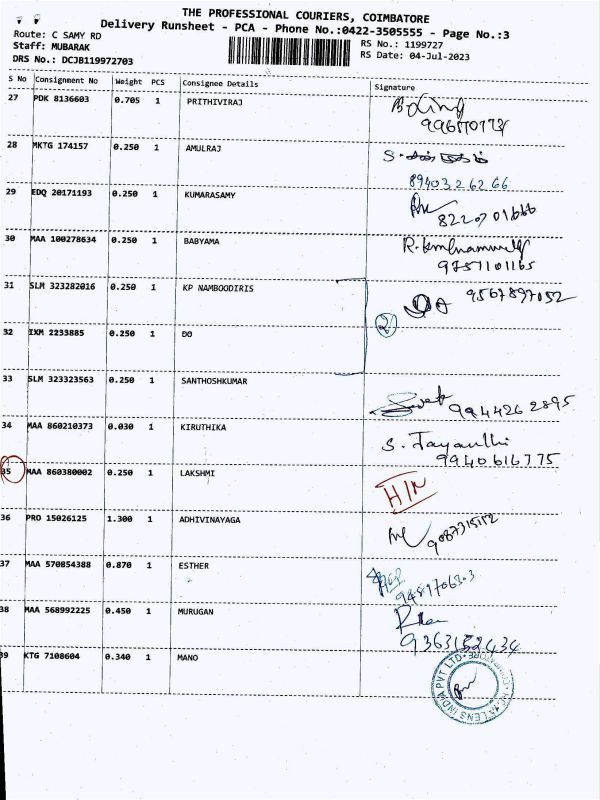 THE PROFESSIONAL COURIERS, COIMBATORE
Delivery Runsheet - PCA - Phone No.:0422-3505555 - Page No.:3
Route: C SAMY RD
Staff: MUBARAK
DRS No.: DCJB119972703
RS No.: 1199727
RS Date: 04-Jul-2023
S No Consignment No Weight PCS Consignee Details Signature
27 PDK 8136603 0.705 1 PRITHIVIRAJ
28 MKTG 174157 0.250 1 AMULRAJ
8940326266
29 EDQ 20171193 0.250 1 KUMARASAMY
8220701666
30 MAA 100278634 0.250 1 BABYAMA
9751101165
31 SLM 323282016 0.250 1 KP NAMBOODIRIS 9567897052
2
32 IXM 2233885 0.250 1 DO
33 SLM 323323563 0.250 1 SANTHOSHKUMAR
9944262895
34 MAA 860210373 0.030 1 KIRUTHIKA
S. Jayanthi
9940616775
35 MAA 860380002 0.250 1 LAKSHMI
H/N
36 PRO 15026125 1.300 1 ADHIVINAYAGA
9087315112
37 MAA 570854388 0.870 1 ESTHER
38 MAA 568992225 0.450 1 MURUGAN
9363152434
39 KTG 7108604 0.340 1 MANO
LENS INDIA PVT LTD